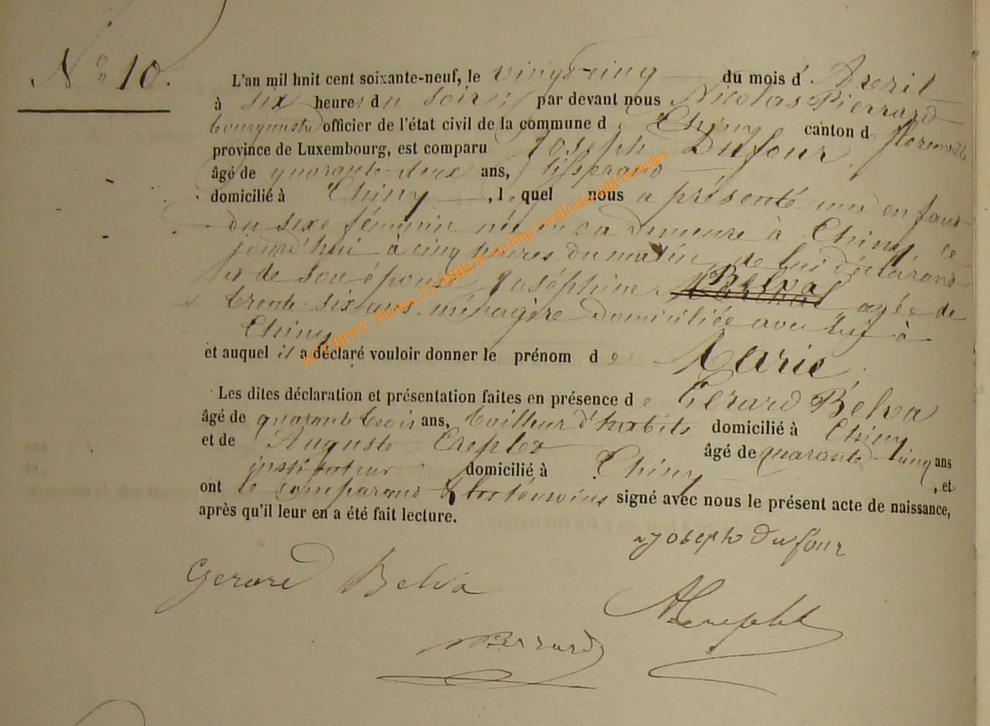 N° 10.
L'an mil huit cent soixante-neuf, le vingt-cinq du mois d' Avril
à six heures du soir, par devant nous Nicolas Pierrard
bourgmestre officier de l'état civil de la commune de Chiny canton d florenville
province de Luxembourg, est comparu Joseph Dufour
âgé de quarante-deux ans, domicilié à Chiny, lequel nous a présenté une enfant
du sexe féminin née en sa demeure à Chiny ce
jourd'hui à cinq heures du matin de lui déclarant
et de son épouse Joséphine Belva agée de
trente-six ans, ménagère domiciliée avec lui à
Chiny
et auquel il a déclaré vouloir donner le prénom de Marie
Les dites déclaration et présentation faites en présence de Gérard Belva
âgé de quarante trois ans, tailleur d'habits domicilié à Chiny
et de Auguste âgé de quarante-cinq ans
instituteur domicilié à Chiny, et
ont le comparant & les témoins signé avec nous le présent acte de naissance,
après qu'il leur en a été fait lecture.
Joseph Dufour
Gerard Belva
Pierrard